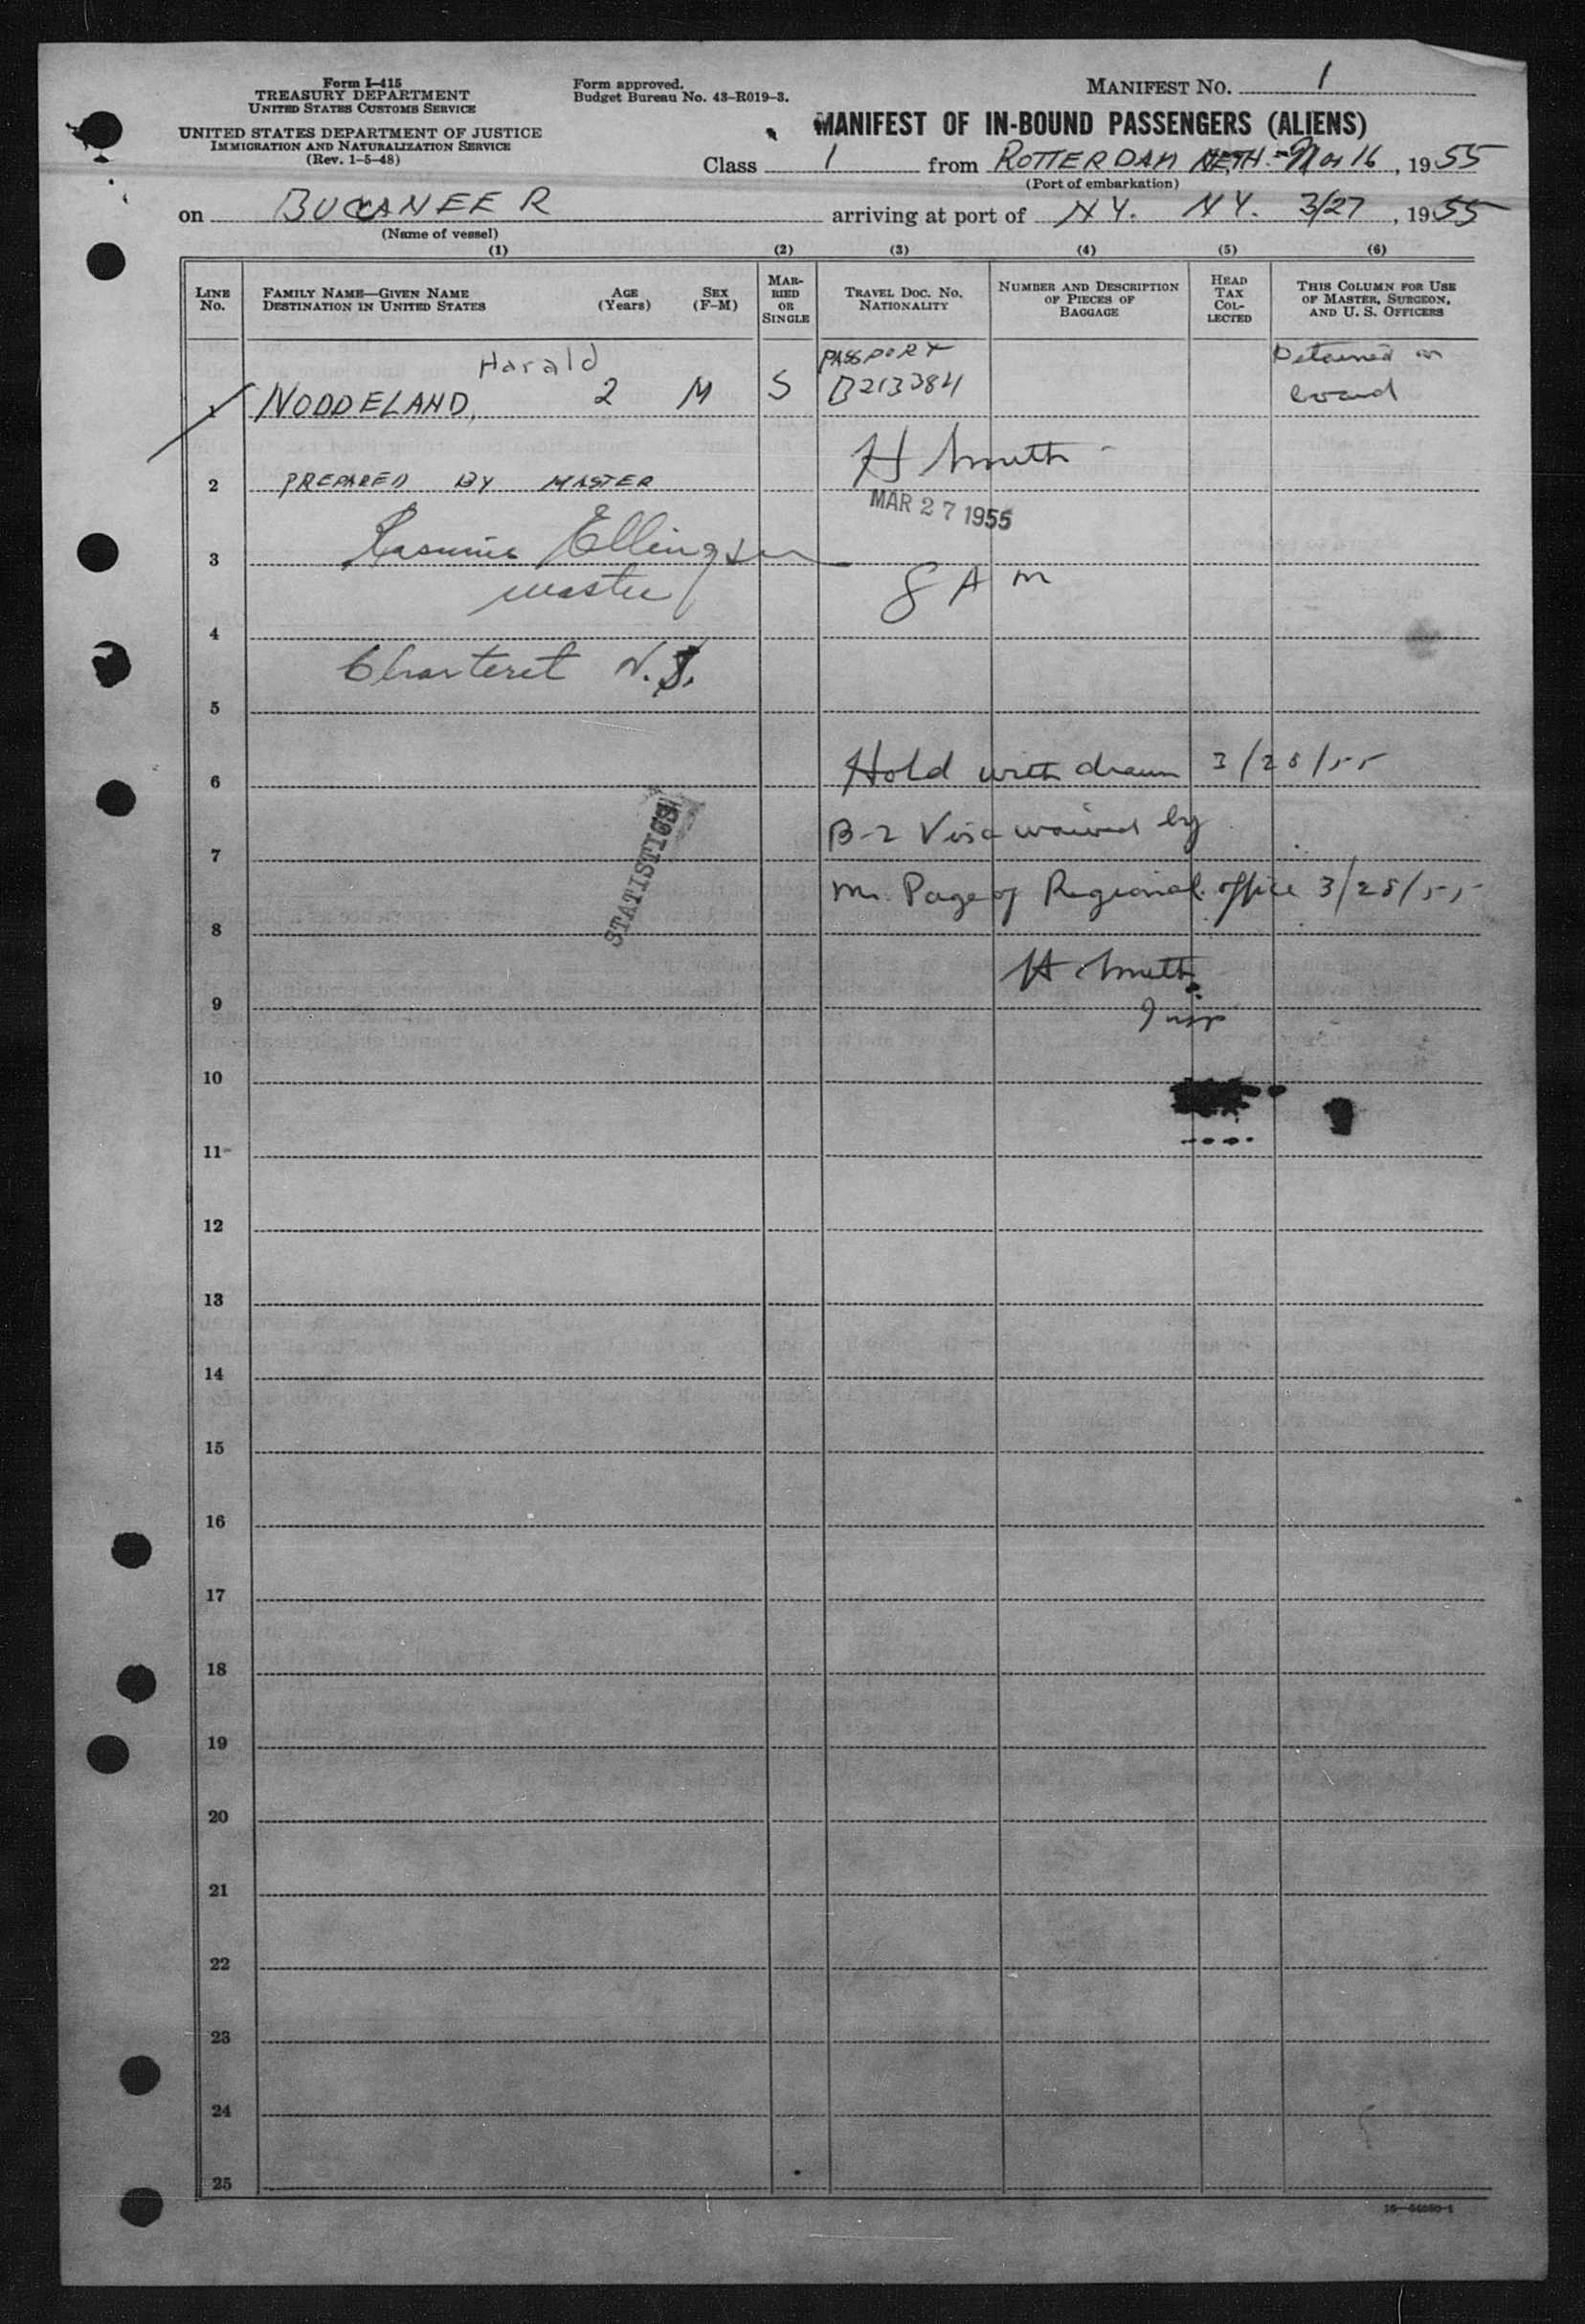 Form I-415
TREASURY DEPARTMENT
UNITED STATES CUSTOMS SERVICE
UNITED STATES DEPARTMENT OF JUSTICE
IMMIGRATION AND NATURALIZATION SERVICE
(Rev. 1-5-48)
Form approved.
Budget Bureau No. 43-R019-3.
MANIFEST NO. 1
MANIFEST OF IN-BOUND PASSENGERS (ALIENS)
Class 1 from ROTTERDAM NETH. Mar 16, 1955
(Port of embarkation)
on BUCCANEER arriving at port of N.Y. N.Y. 3/27, 1955
(Name of vessel)
(1) (2) (3) (4) (5) (6)
LINE NO.
FAMILY NAME—GIVEN NAME
DESTINATION IN UNITED STATES
AGE (Years)
SEX (F-M)
MARRIED OR SINGLE
TRAVEL DOC. NO.
NATIONALITY
NUMBER AND DESCRIPTION OF PIECES OF BAGGAGE
HEAD TAX COLLECTED
THIS COLUMN FOR USE OF MASTER, SURGEON, AND U. S. OFFICERS
Harald PASSPORT Detained on
1 NODDELAND, 2 M S B213384 board
H Smith
2 PREPARED BY MASTER
MAR 27 1955
3 Rasmus Ellingsen
master 8 A M
4
Charteret N.J.
5
6 Hold withdrawn 3/28/55
7 B-2 Visa waived by
8 Mr. Page of Regional office 3/28/55
STATISTICS
H Smith
9
Insp
10
11
12
13
14
15
16
17
18
19
20
21
22
23
24
25